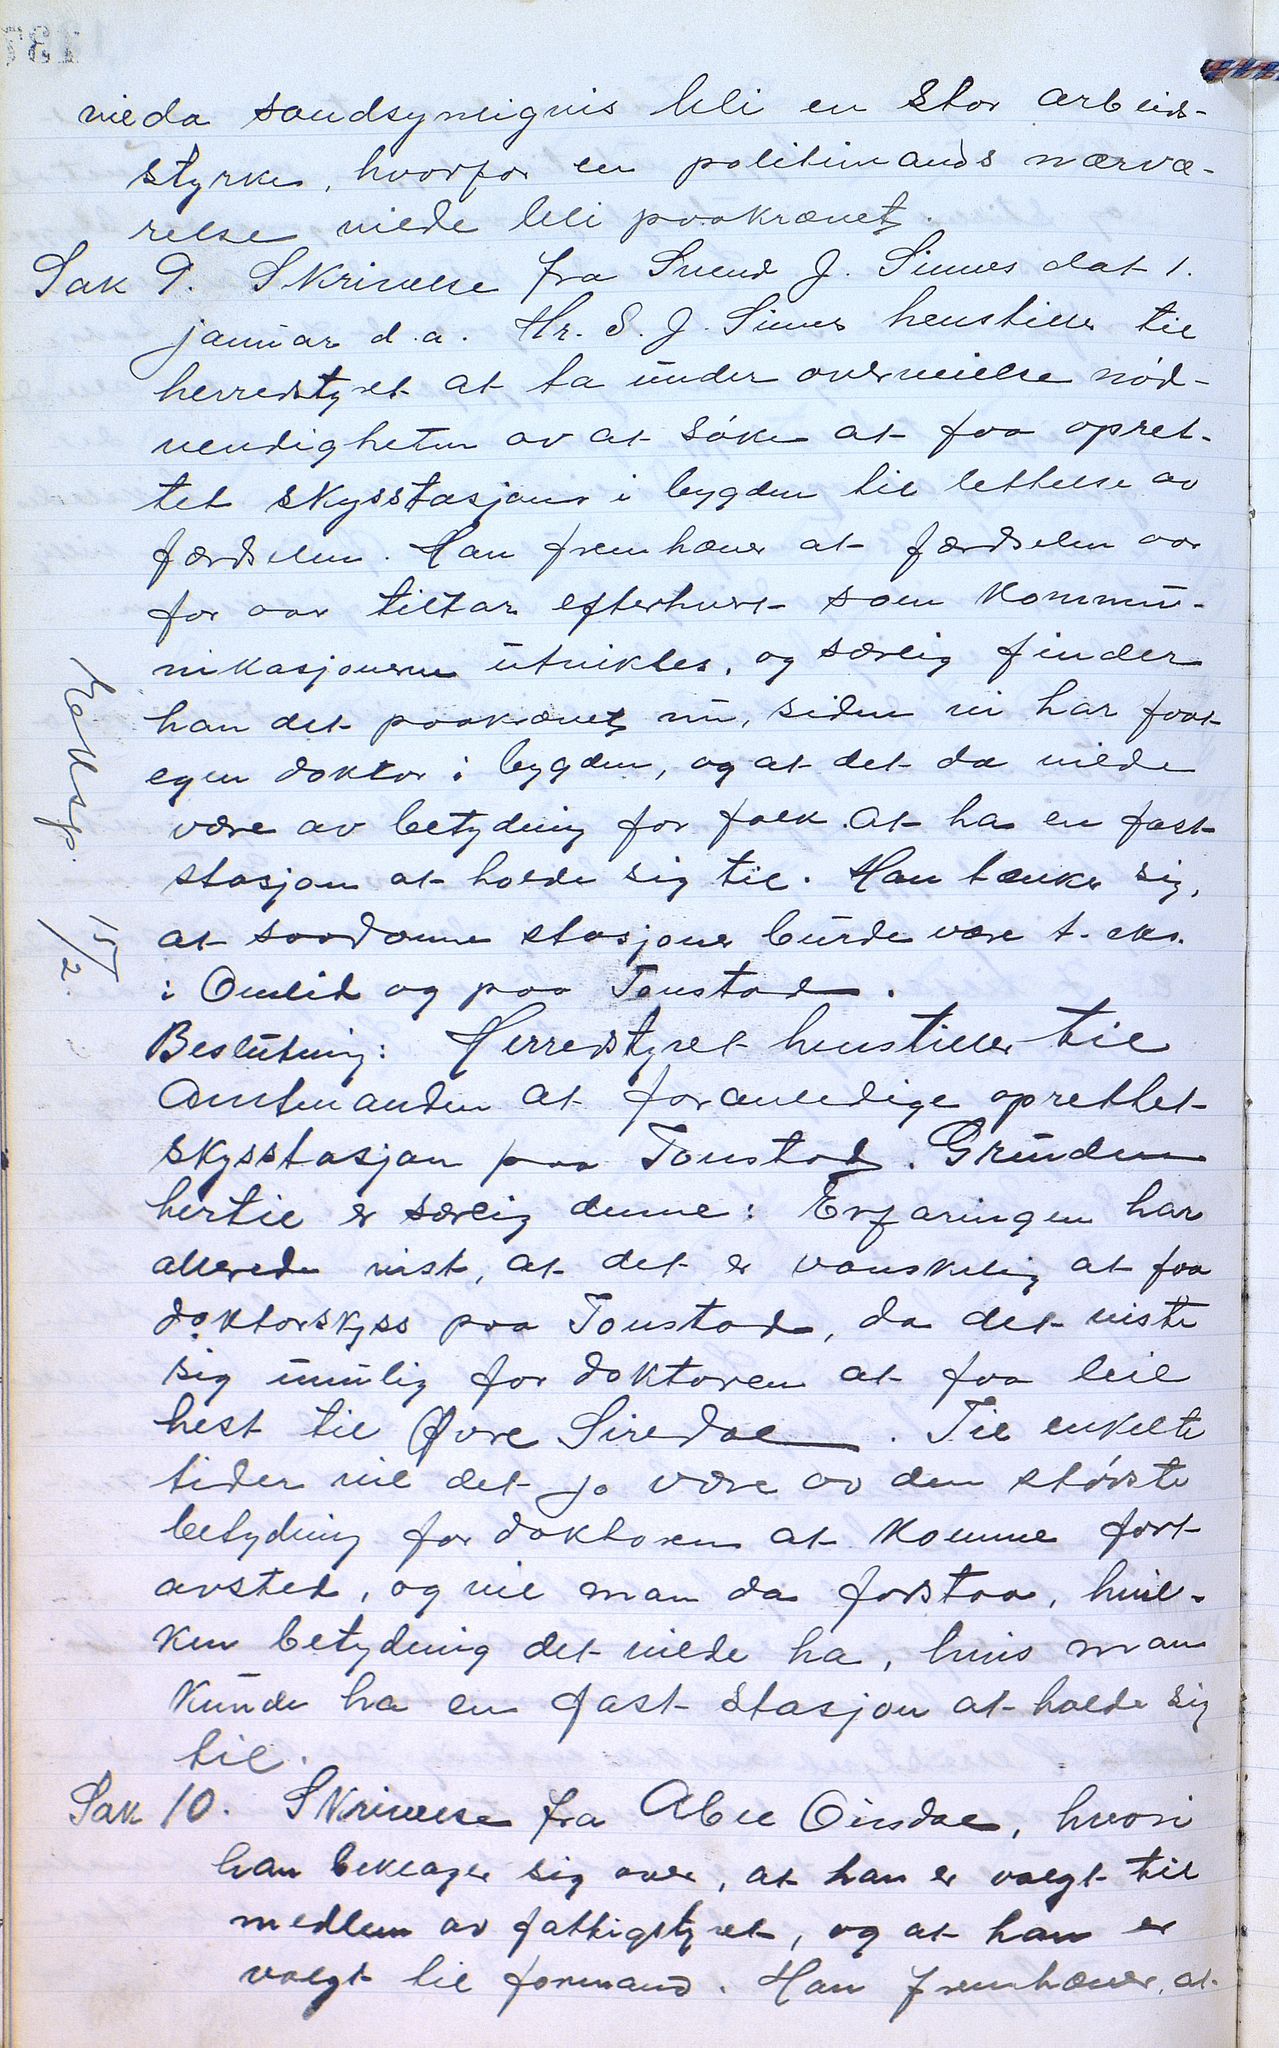 vilda sandsynligvis bli en stor arbeids-
styrke, hvorfor en politimands nærvæ-
relse vilde bli paakrævet.
Sak 9. Skrivelse fra Svend J. Sinnes dat 1.
januar d.a. Hr. S. J. Sinnes henstiller til
herredstyret at ta under overveielse nød-
vendigheten av at søke at faa opret-
tet skysstasjoner i bygden til lettelse av
færdselen. Han fremhæver at færdselen aar
for aar tiltar efterhvert som kommu-
nikasjonerne utvikles, og særlig finder
han det paakrævet nu, siden vi har faat
egen doktor i bygden, og at det da vilde
være av betydning for folk at ha en fast
stasjon at holde sig til. Han tænker sig,
at saadanne stasjoner burde være t. eks.
i Omlid og paa Tonstad.
Beslutning: Herredstyret henstiller til
amtmanden at foranledige oprettet
skysstasjon paa Tonstad. Grunden
hertil er særlig denne: Erfaringen har
allerede vist, at det er vanskelig at faa
doktorskyss paa Tonstad, da det viste
sig umulig for doktoren at faa leie
hest til Øvre Siredal. Til enkelte
tider vil det jo være av den største
betydning for doktoren at komme fort
avsted, og vil man da forstaa, hvil-
ken betydning det vilde ha, hvis man
kunde ha en fast stasjon at holde sig
til.
Sak 10. Skrivelse fra Abel Ousdal, hvori
han beklager sig over, at han er valgt til
medlem av fattigstyret, og at han er
valgt til formand. Han fremhæver, at
15/2
137